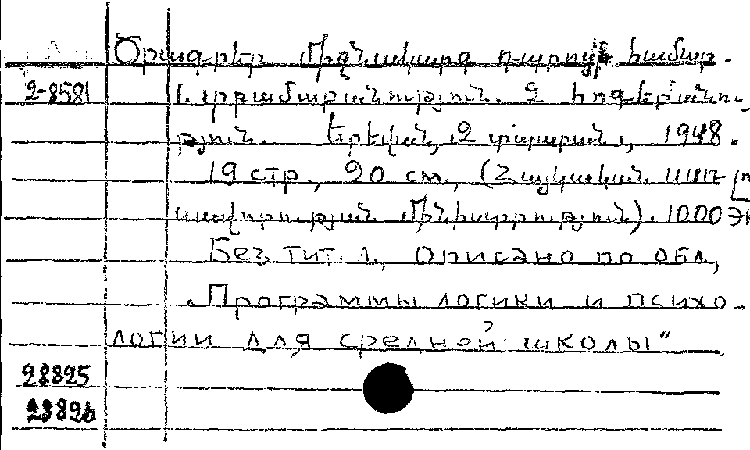 Ծրագրեր միջնակարգ դպրոցի համար.
2-8581 1. Տրամաբանություն. 2 հոգեբանու
թյուն. Երևան, 1948.
19 стр., 20 см, (Հայկական ՍՍՌ լու
սավորության մինիստրություն). 1000 эк
Без тит. л., Описано по обл,
„Программы логики и психо-
логии для средней школы“
28825
28826